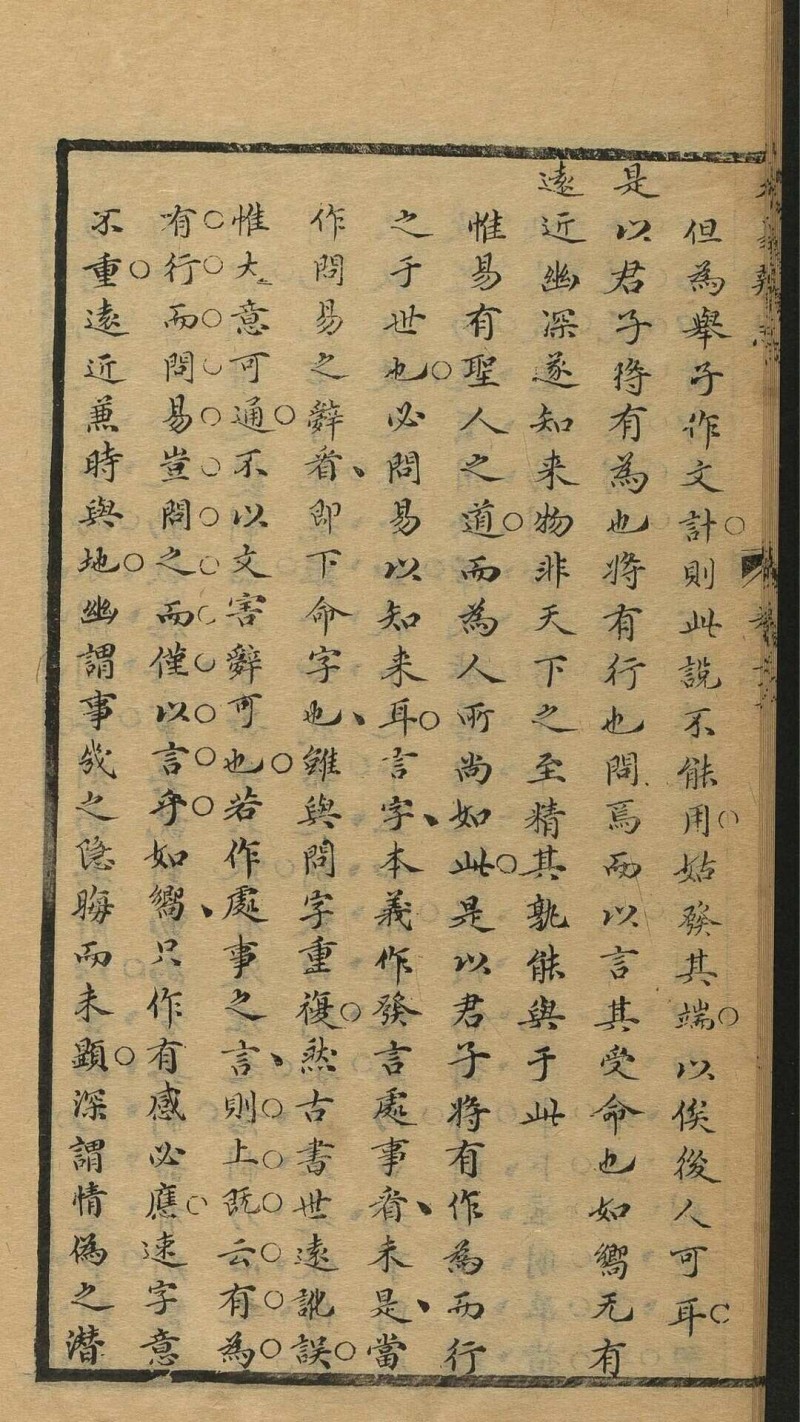 但為舉子作文計則此說不能用姑發其端以俟後人可耳
是以君子將有為也將有行也問焉而以言其受命也如嚮无有
遠近幽深遂知来物非天下之至精其孰能與于此
惟易有聖人之道而為人所尚如此是以君子將有作為而行
之于世也必問易以知来耳言字本義作發言處事看未是當
作問易之辭看即下命字也雖與問字重復然古書世遠訛誤
惟大意可通不以文害辭可也若作處事之言則上既云有為
有行而問易豈問之而僅以言乎如嚮只作有感必應速字意
不重遠近兼時與地幽謂事幾之隱晦而未顕深謂情偽之潜